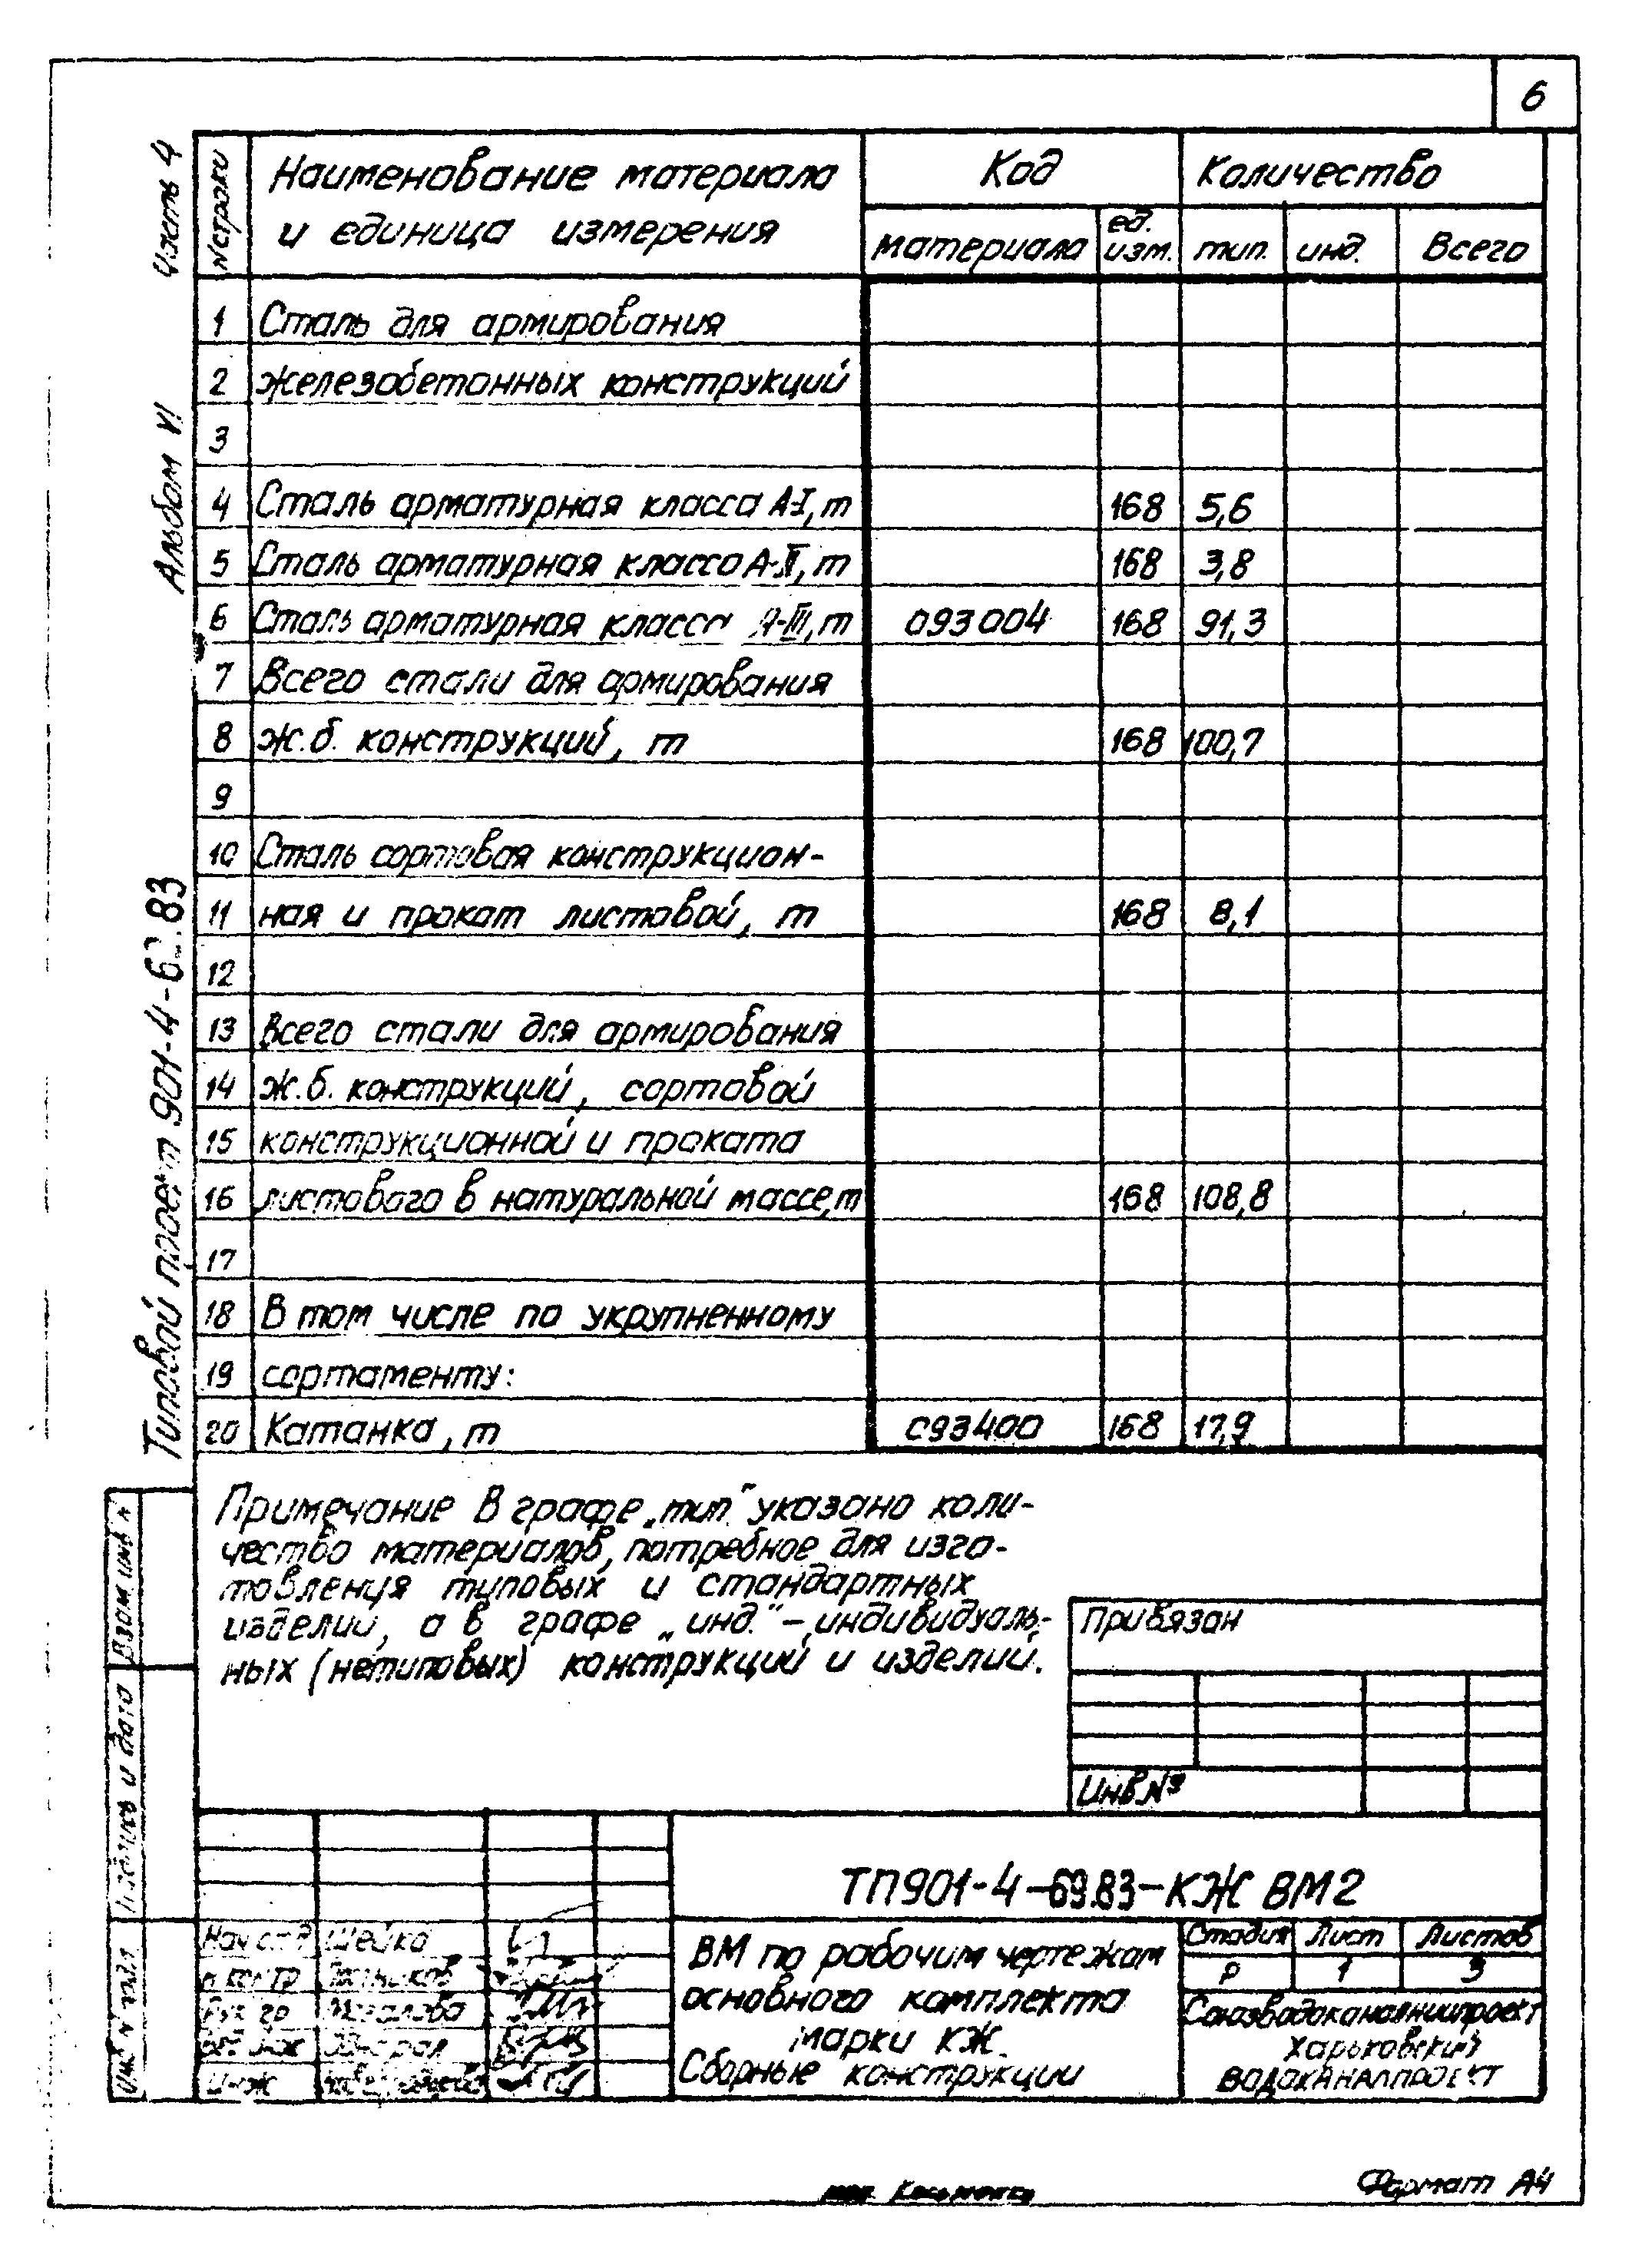 6
Часть 4
Альбом VI
Типовой проект 901-4-69.83
N строки
Наименование материала
и единица измерения
Код
Количество
материала
ед.
изм.
тип.
инд.
Всего
1 Сталь для армирования
2 железобетонных конструкций
3
4 Сталь арматурная класса А-I, т 168 5,6
5 Сталь арматурная класса А-II, т 168 3,8
6 Сталь арматурная класса А-III, т 093004 168 91,3
7 Всего стали для армирования
8 ж.б. конструкций, т 168 100,7
9
10 Сталь сортовая конструкцион-
11 ная и прокат листовой, т 168 8,1
12
13 Всего стали для армирования
14 ж.б. конструкций, сортовой
15 конструкционной и проката
16 листового в натуральной массе, т 168 108,8
17
18 В том числе по укрупненному
19 сортаменту:
20 Катанка, т 093400 168 17,9
Примечание В графе „тип" указано коли-
чество материалов, потребное для изго-
товления типовых и стандартных
изделий, а в графе „инд." – индивидуаль-
ных (нетиповых) конструкций и изделий.
Привязан
Инв №
Взам инв N
Подпись и дата
Инв N подл
ТП901-4-69.83-КЖ ВМ2
Нач отд Шейко
н контр
Рук гр
Инж
ВМ по рабочим чертежам
основного комплекта
марки КЖ.
Сборные конструкции
Стадия Лист Листов
Р 1 3
Союзводоканалниипроект
Харьковский
ВОДОКАНАЛПРОЕКТ
Формат А4